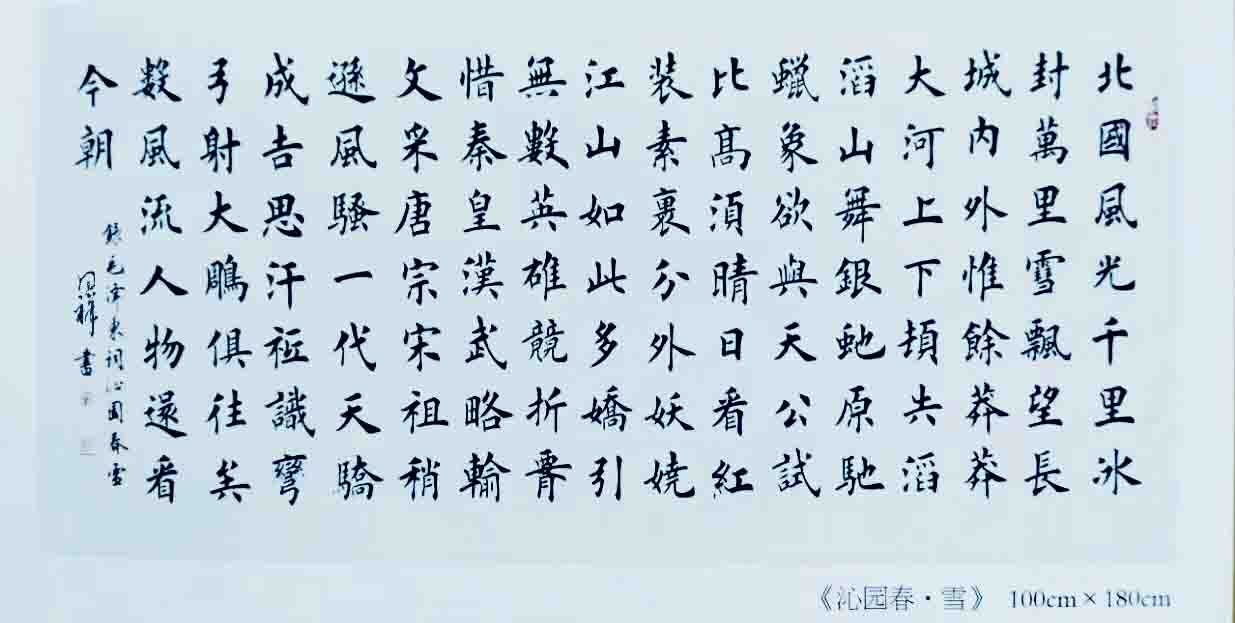 北國風光千里冰
封萬里雪飄望長
城内外惟餘莽莽
大河上下頓失滔
滔山舞銀虵原馳
蠟象欲與天公試
比髙須晴日看紅
装素裹分外妖娆
江山如此多嬌引
無數英雄競折腰
惜秦皇漢武略輸
文采唐宗宋祖稍
遜風騷一代天驕
成吉思汗祗識彎
弓射大鵰俱往矣
數風流人物還看
今朝
錄毛澤東詞沁園春雪
書
《沁园春·雪》 100cm×180cm